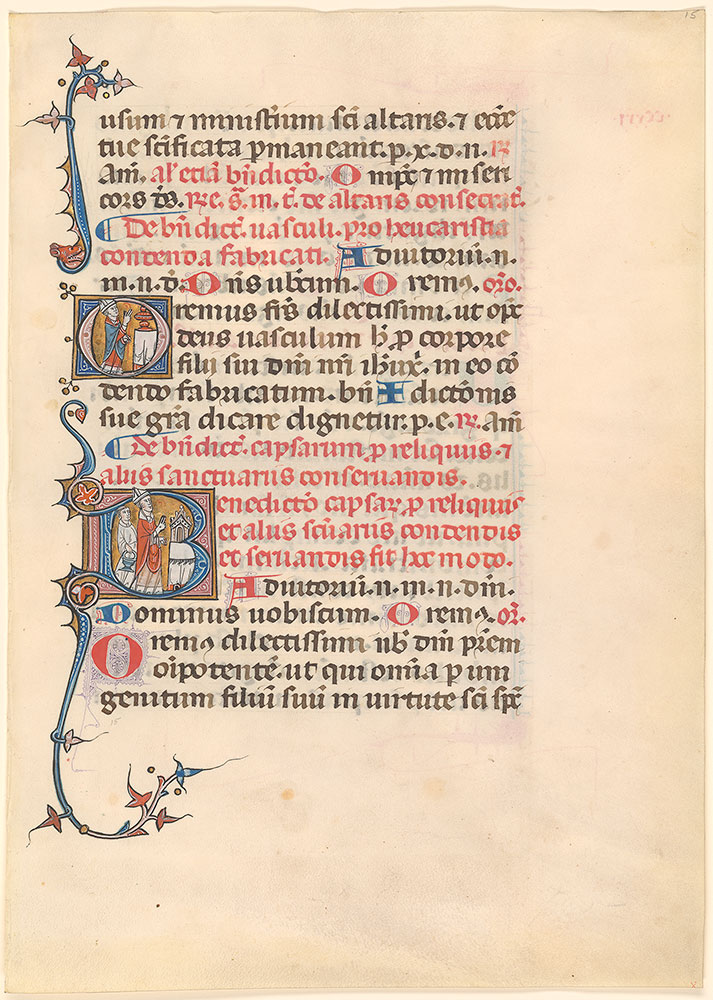 15
usum ⁊ ministiũm sc̃i altaris. ⁊ ecc̃e
tue sc̃ificata ꝑmaneant. p. x. d. n. ℟
Am̃. al' etiã bñdictõ. Omp̃s ⁊ miseri
cors dẽ. ℟e. s̃. in. t̃. de altaris consecrat̃.
De bñdict̃. uasculi. pro heucaristia
contenda fabricati. Adiutoriũ. n.
in. n. d. Dñs ubcum. Oremꝰ. orõ.
Oremus fr̃s dilectissimi. ut op̃s
deus uasculum h̃ ꝓ corpore
filii sui dñi nr̃i ih̃u xp̃i. in eo cõ
dendo fabricatum. bñe dictõnis
sue gr̃a dicare dignetur. p. e. ℟. Am̃
De bñdict̃. capsarum. ꝓ reliquiis ⁊
aliis sanctuariis conseruandis.
Benedictõ capsaꝝ. ꝓ reliquiis
et aliis sc̃uariis contendis
et seruandis fit hec moto.
Adiutoriũ. n. in. n. dñi.
Dominus uobiscum. Oremꝰ. or̃.
Oremꝰ dilectissimi nb̃ dm̃ pr̃em
oĩpotentẽ. ut qui omĩa ꝑ uni
genitum filiũ suũ in uirtute sc̃i sp̃c
15